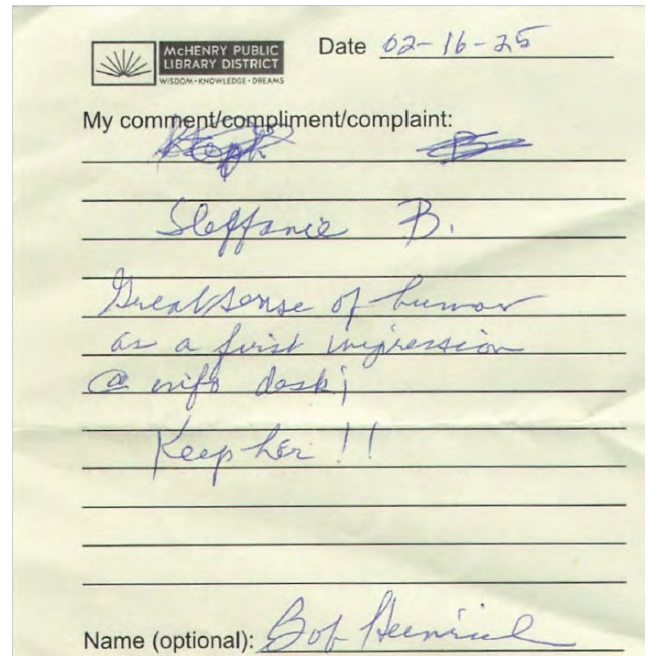 McHENRY PUBLIC
LIBRARY DISTRICT
WISDOM • KNOWLEDGE • DREAMS
Date 02-16-25
My comment/compliment/complaint:
Steffanie B.
Great sense of humor
as a first impression
@ info desk;
Keep her !!
Name (optional): Bob Heinrich